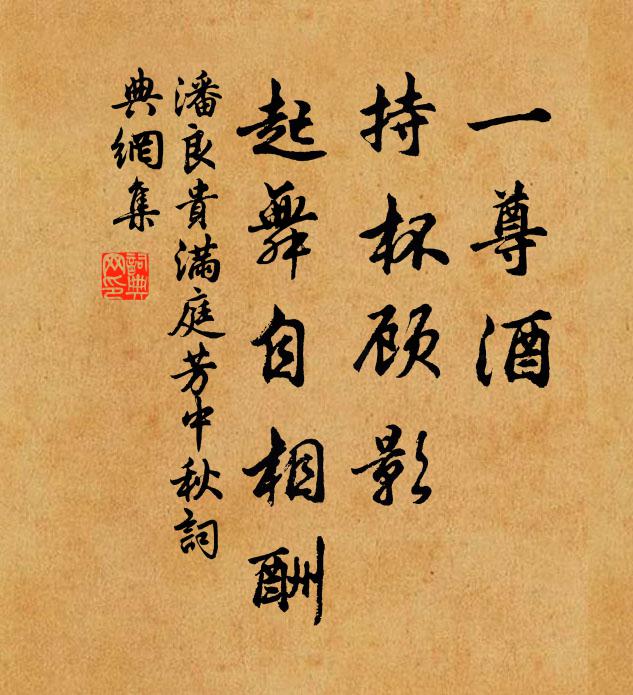 一尊酒
持杯顾影
起舞自相酬
潘良貴滿庭芳中秋詞
典網集
詞典网印